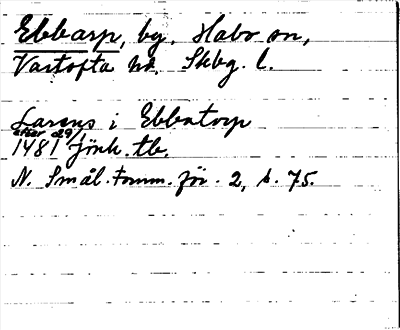 Ebbarp, by. Habo sn,
Vartofta hd. Skbg. l.
Larens i Ebbatorp
efter d29/1
1481 Jönk. tb.
N. Smål. Fornm. för. 2, s. 75.